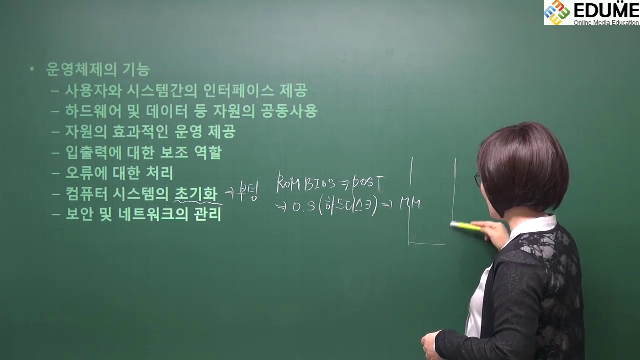 EDUME
Online Media Education
• 운영체제의 기능
– 사용자와 시스템간의 인터페이스 제공
– 하드웨어 및 데이터 등 자원의 공동사용
– 자원의 효과적인 운영 제공
– 입출력에 대한 보조 역할
– 오류에 대한 처리
– 컴퓨터 시스템의 초기화 → 부팅 ROM BIOS → POST
→ O.S (하드디스크) → M.M
– 보안 및 네트워크의 관리